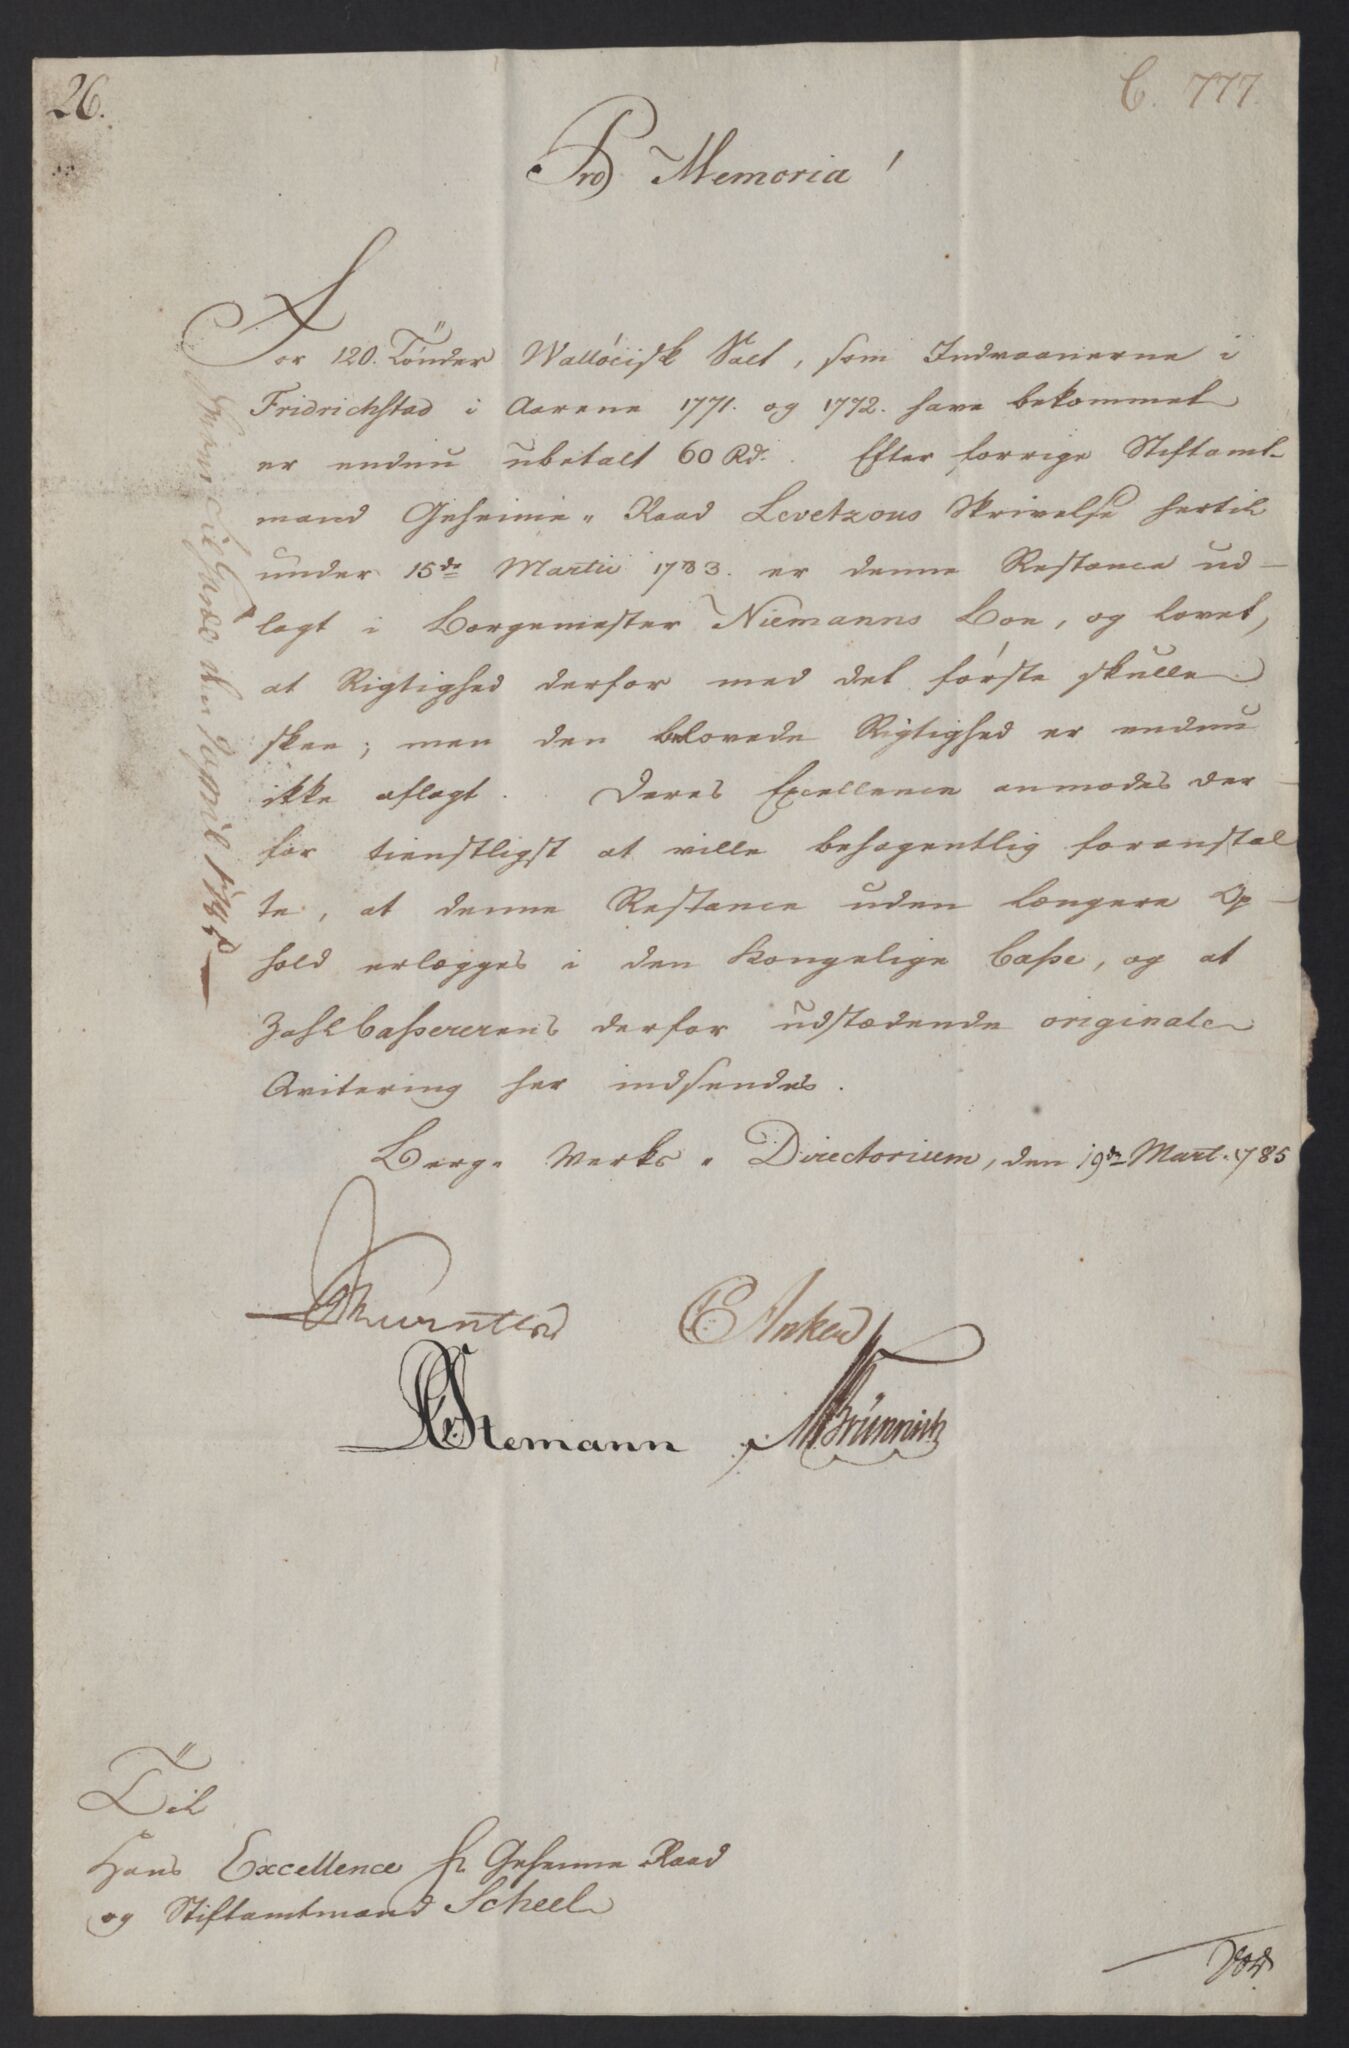 26.
C. 777.
Pro Memoria!
For 120. Tønder Walløeisk Salt, som Indvaanerne i
Fridrichstad i Aarene 1771. og 1772. have bekommet
er endnu ubetalt 60 Rd. Efter forrige Stiftamt-
mand Geheime- Raad Levetzous Skrivelse hertil
under 15de Martii 1783. er denne Restance ud-
lagt i Borgemester Niemanns Boe, og lovet,
at Rigtighed derfor med det første skulle
skee; men den belovede Rigtighed er endnu
ikke aflagt. Deres Excellence anmodes der-
for tienstligst at ville behagentlig foranstal
te, at denne Restance uden længere Op-
hold erlægges i den Kongelige Casse, og at
Zahlcassererens derfor udstædende originale
Qvitering her indsendes.
Berg- Werks- Directorium, den 19de Mart. 1785
C Anker
Stemann MBrünnich
Til
Hans Excellence Hr Geheime Raad
og Stiftamtmand Scheel
April 1785